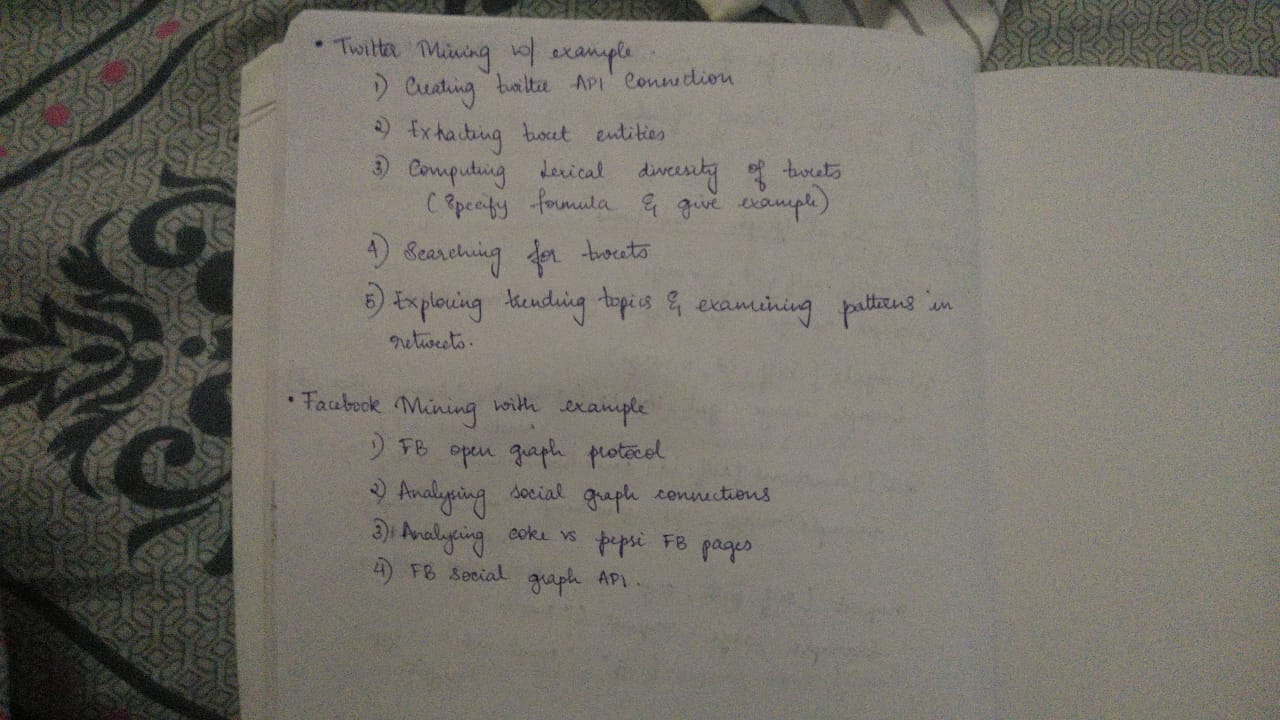 • Twitter Mining w/ example.
1) Creating twitter API Connection
2) Extracting tweet entities
3) Computing Lexical diversity of tweets
(Specify formula & give example)
4) Searching for tweets
5) Exploring trending topics & examining patterns in
retweets.
• Facebook Mining with example
1) FB open graph protocol
2) Analysing social graph connections
3) Analysing coke vs pepsi FB pages
4) FB Social graph API.